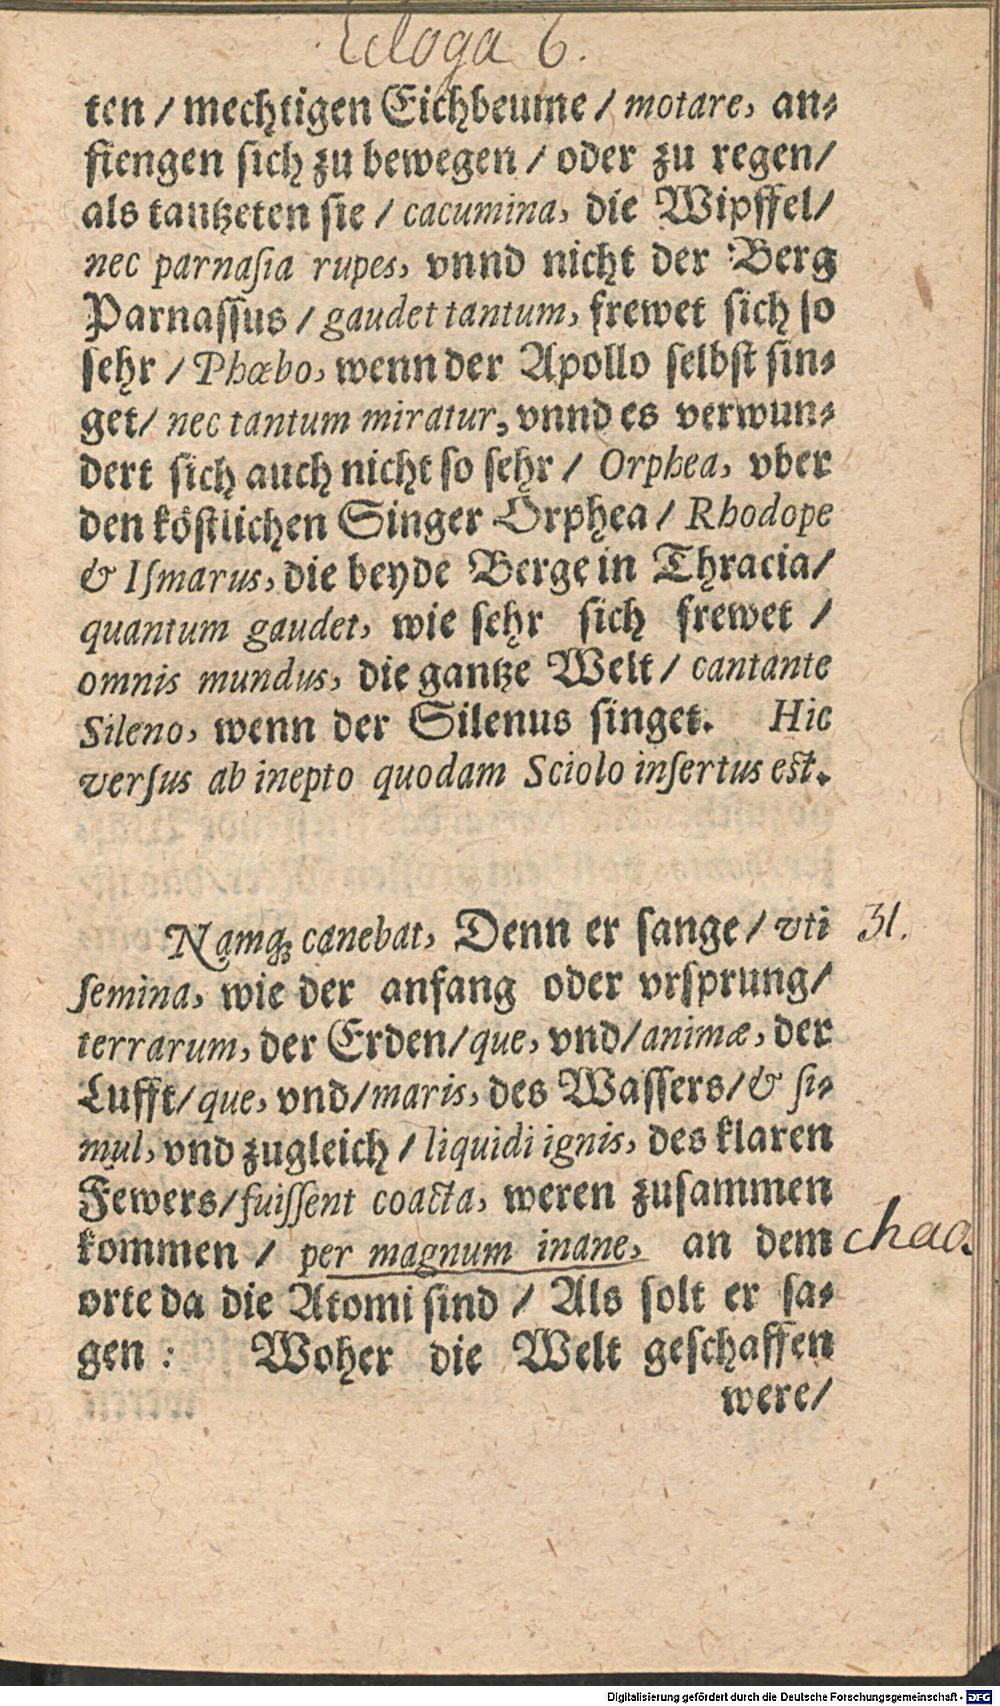 Ecloga 6.
ten / mechtigen Eichbeume / motare, an⸗
fiengen sich zu bewegen / oder zu regen/
als tantzeten sie / cacumina, die Wipffel/
nec parnaſia rupes, vnnd nicht der Berg
Parnassus / gaudet tantum, frewet sich so
sehr / Phœbo, wenn der Apollo selbst sin⸗
get/ nec tantum miratur, vnnd es verwun⸗
dert sich auch nicht so sehr / Orphea, vber
den köstlichen Singer Orphea / Rhodope
& Iſmarus, die beyde Berge in Thracia/
quantum gaudet, wie sehr sich frewet /
omnis mundus, die gantze Welt / cantante
Sileno, wenn der Silenus singet. Hic
verſus ab inepto quodam Sciolo inſertus eſt.
Namq; canebat, Denn er sange / vti 31.
ſemina, wie der anfang oder vrsprung/
terrarum, der Erden/ que, vnd/ animæ, der
Lufft/ que, vnd/ maris, des Wassers/ & ſi⸗
mul, vnd zugleich / liquidi ignis, des klaren
Fewers/ fuiſſent coacta, weren zusammen
kommen / per magnum inane, an dem chaos
orte da die Atomi sind / Als solt er sa⸗
gen : Woher die Welt geschaffen
were/
Digitalisierung gefördert durch die Deutsche Forschungsgemeinschaft - DFG